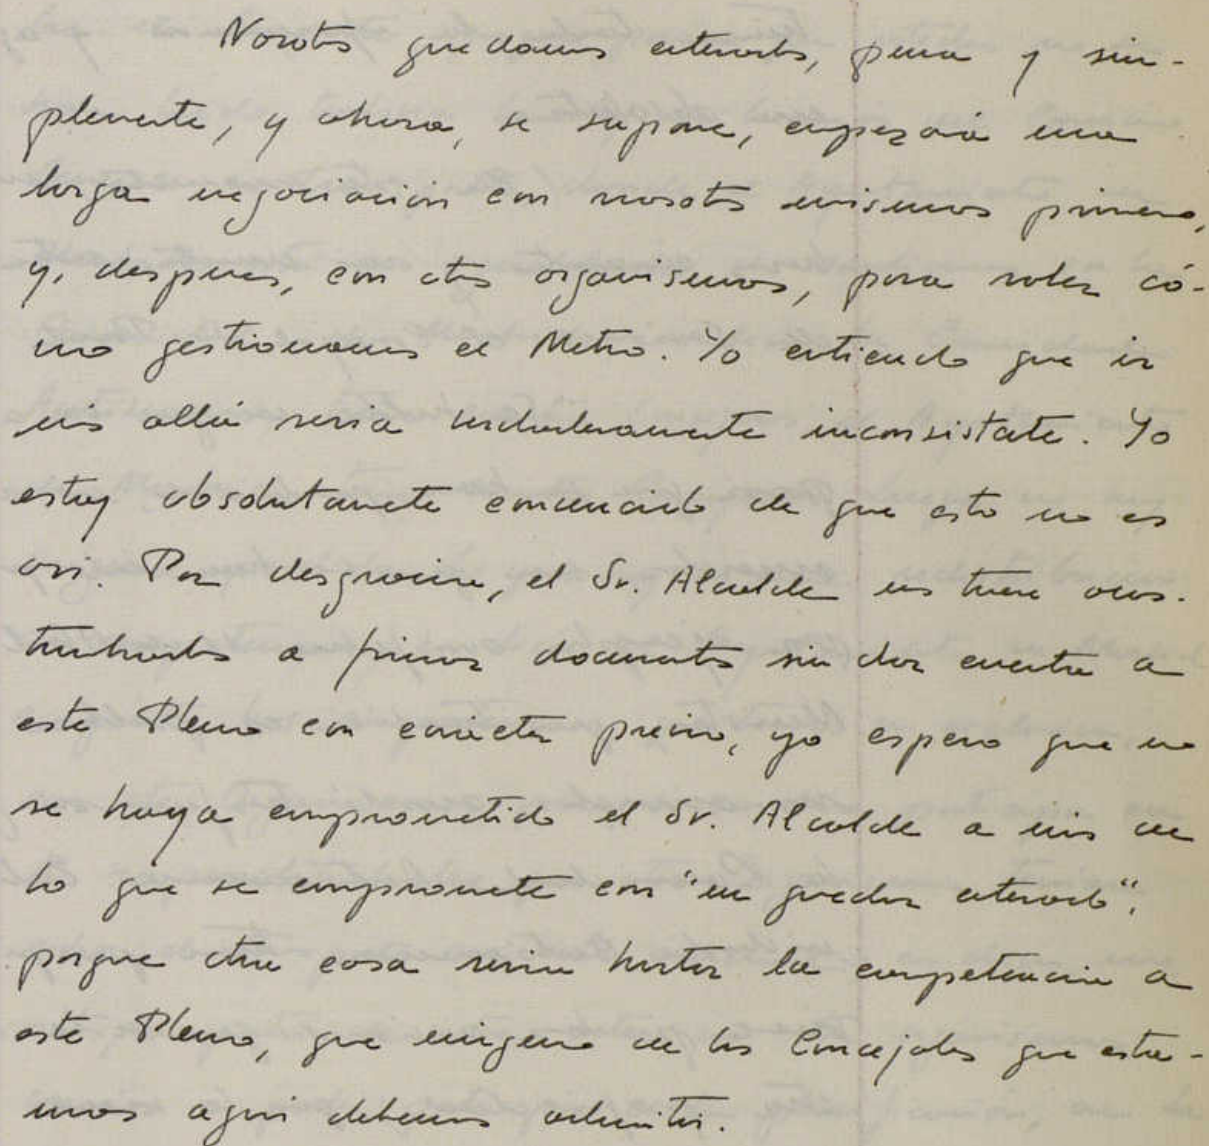 Nosotros quedamos enterados, pura y sim-
plemente, y ahora, se supone, empezará una
larga negociación con nosotros mismos primero,
y, despues, con otros organismos, para saber có-
mo gestionamos el Metro. Yo entiendo que ir
más allá seria verdaderamente inconsistente. Yo
estoy absolutamente convencido de que esto no es
asi. Por desgracia, el Sr. Alcalde nos tiene acos-
tumbrados a firmar documentos sin dar cuenta a
este Pleno con carácter previo, yo espero que no
se haya comprometido el Sr. Alcalde a más de
lo que se compromete con "un quedar enterado",
porque otra cosa seria hurtar la competencia a
este Pleno, que ninguno de los Concejales que esta-
mos aqui debemos admitir.